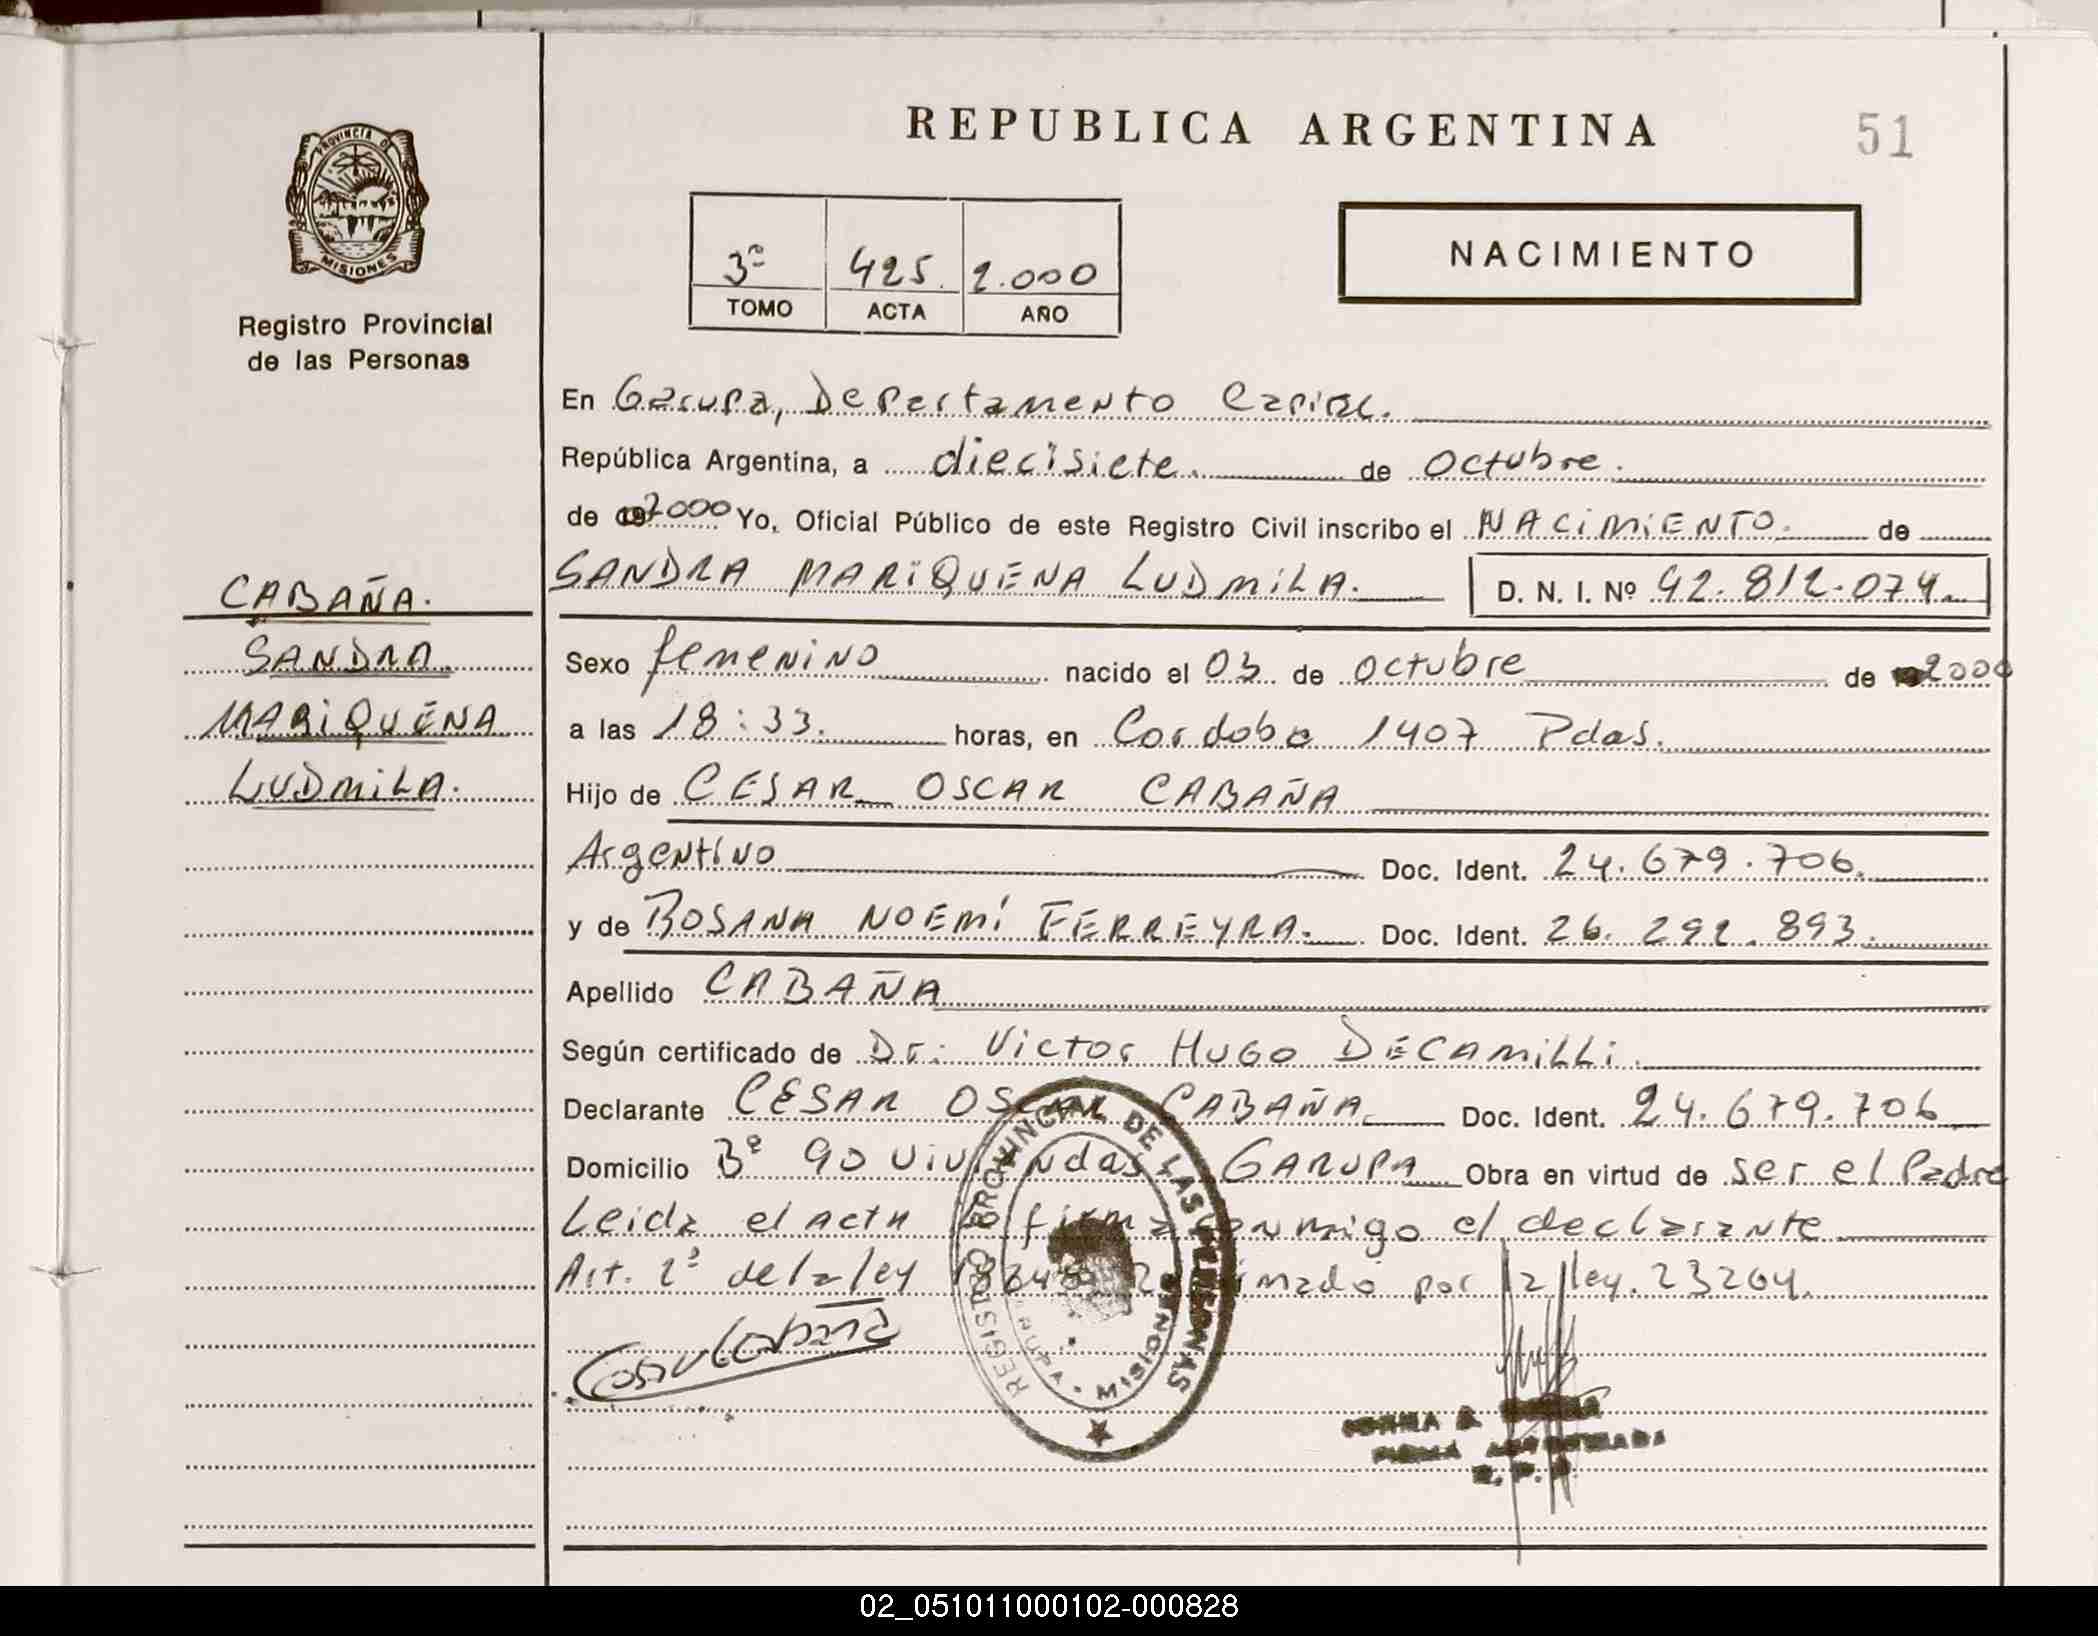 REPUBLICA ARGENTINA
51
PROVINCIA DE
MISIONES
Registro Provincial
de las Personas
3º 425. 2.000
TOMO ACTA AÑO
NACIMIENTO
En Garupa, Departamento Capital.
República Argentina, a diecisiete. de Octubre.
de 2000 Yo, Oficial Público de este Registro Civil inscribo el NACIMIENTO. de
SANDRA MARIQUENA LUDMILA. D. N. I. Nº 42.812.074
CABAÑA.
SANDRA
MARIQUENA
LUDMILA.
Sexo femenino nacido el 03 de octubre de 2000
a las 18:33. horas, en Cordoba 1407 Pdas.
Hijo de CESAR OSCAR CABAÑA
Argentino Doc. Ident. 24.679.706.
y de ROSANA NOEMÍ FERREYRA. Doc. Ident. 26.292.893.
Apellido CABAÑA
Según certificado de Dr: Victor Hugo DECAMILLI.
Declarante CESAR OSCAR CABAÑA Doc. Ident. 24.679.706
Domicilio Bº 90 Viviendas GARUPA Obra en virtud de ser el Padre
Leida el acta firma conmigo el declarante
Art. 2º de la ley por la ley. 23264.
REGISTRO PROVINCIAL DE LAS PERSONAS
MISIONES
02_051011000102-000828